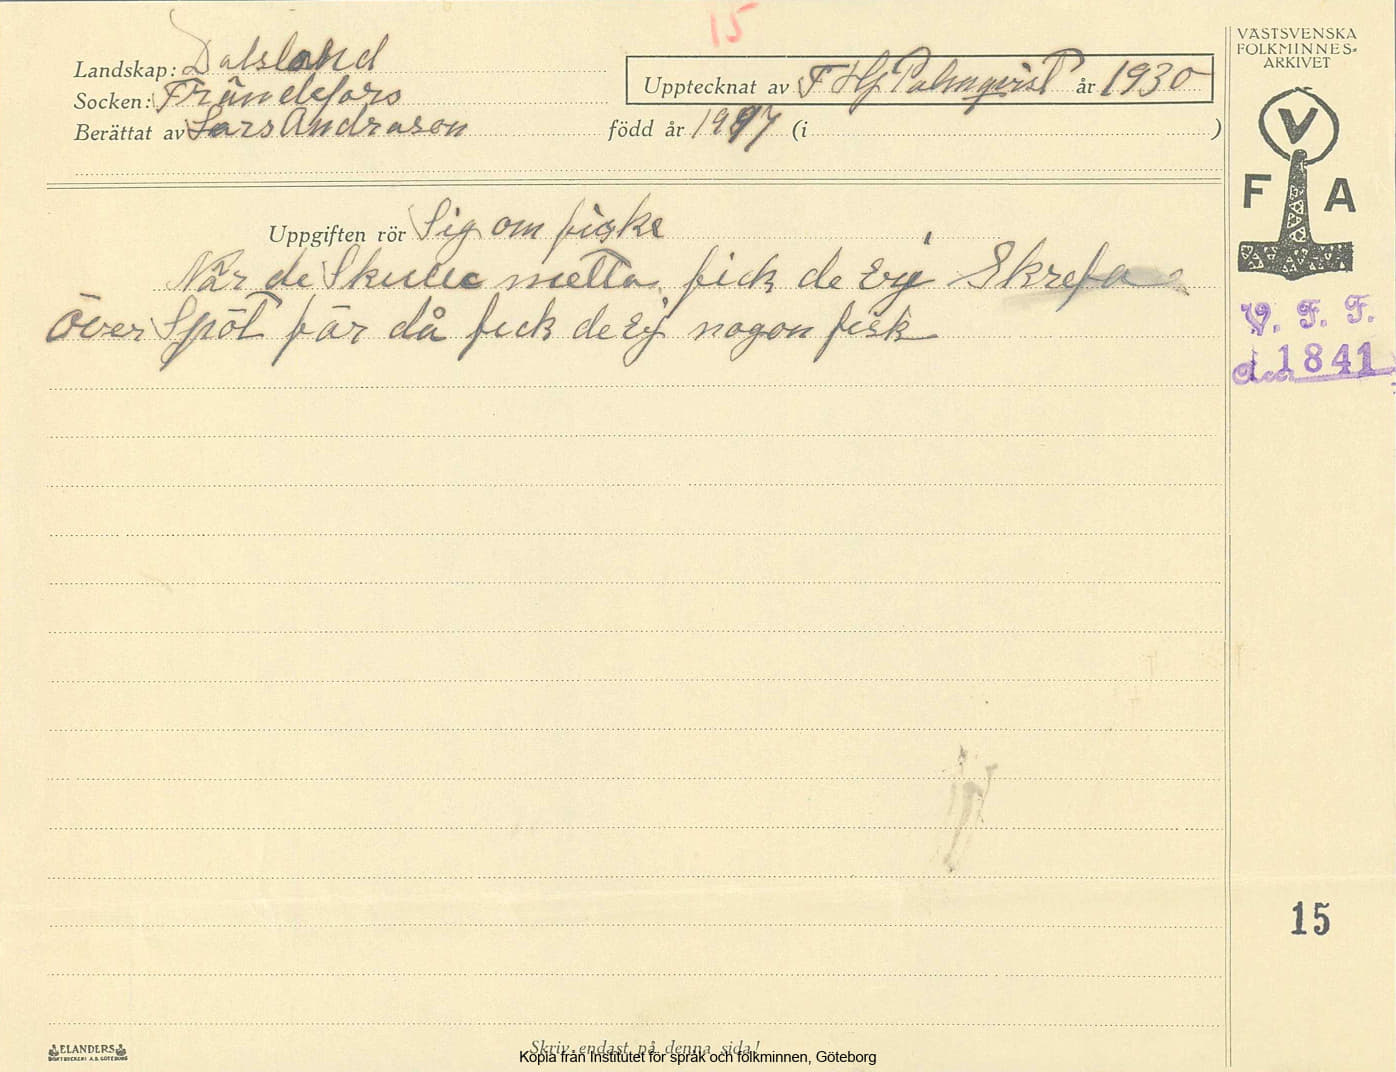 15
VÄSTSVENSKA
FOLKMINNES-
ARKIVET
Landskap: Dalsland
Upptecknat av F Hj Palmqvist år 1930
Socken: Frändefors
Berättat av Lars Andrason född år 1997 (i )
V
F A
Uppgiften rör Sig om fiske
När de Skulle metta fick de Ej Skrefa
över Spöt för då fick de Ej nogon fisk
V. F. F.
1841
15
ELANDERS
BOKTRYCKERI A.B. GÖTEBORG
Skriv endast på denna sida!
Kopia från Institutet för språk och folkminnen, Göteborg